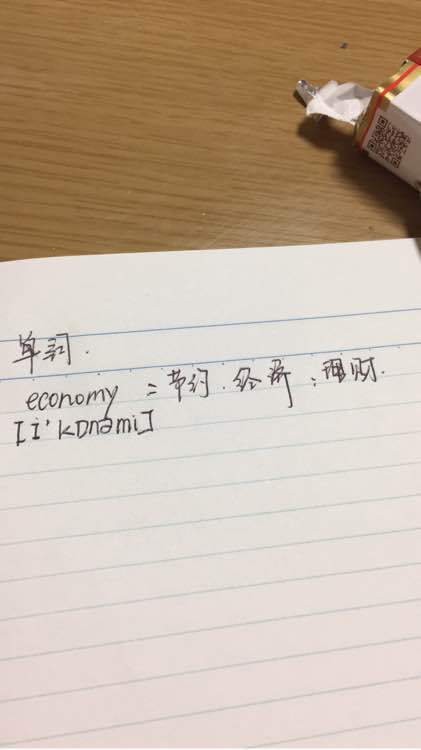 单词.
economy = 节约.经济;理财.
[ɪ'kɒnəmi]